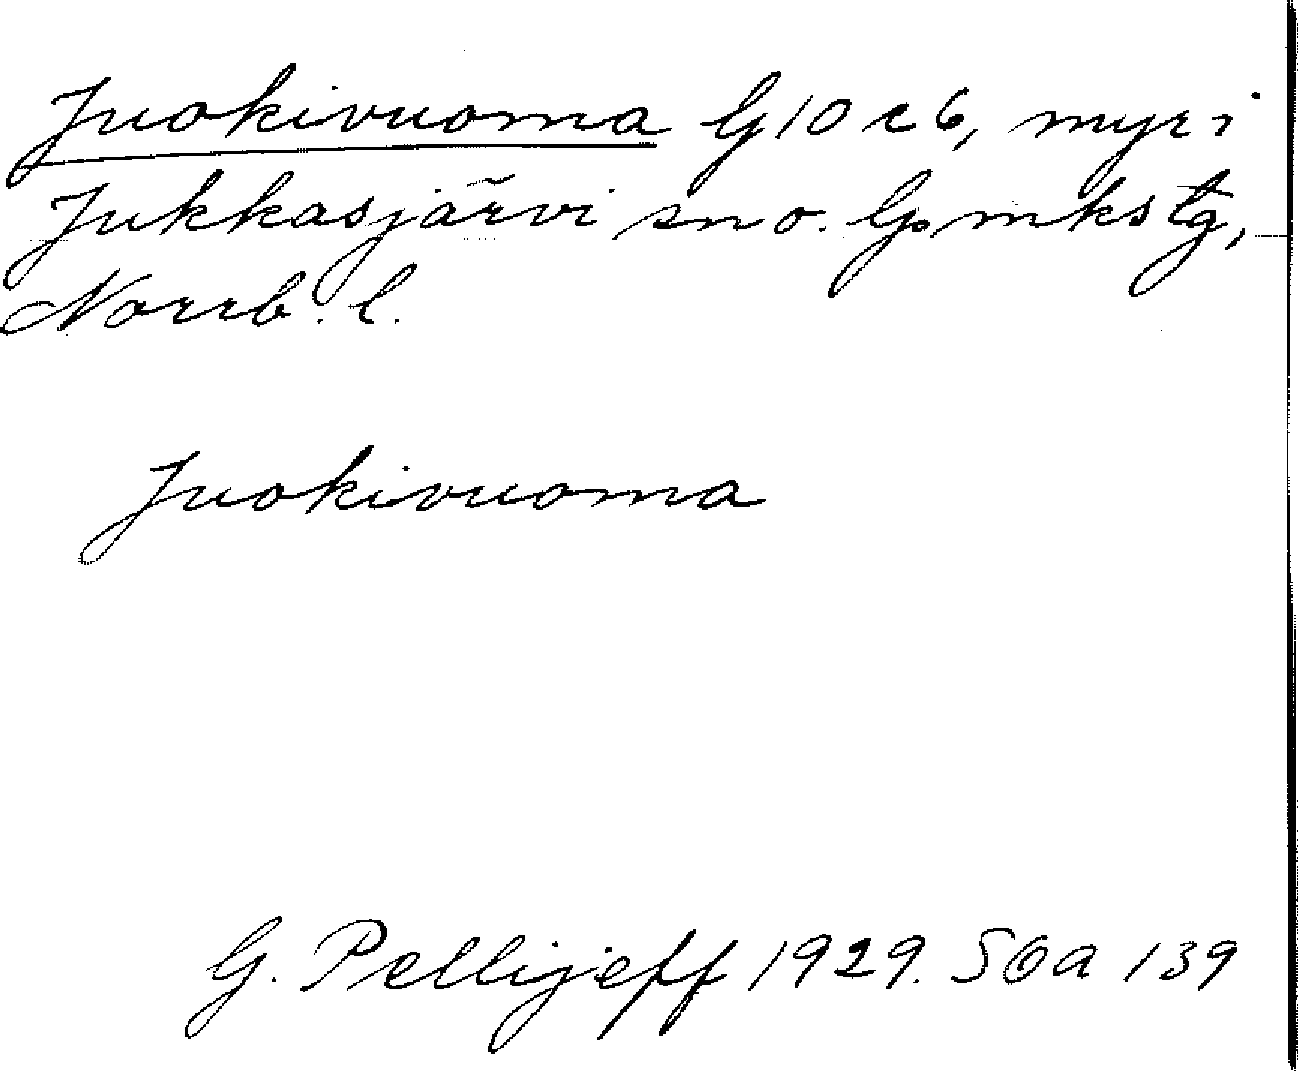 Juokivuoma G 10 c 6, myr i
Jukkasjärvi sn o. G:mkstg,
Norrb. l.
Juokivuoma
G. Pellijeff 1929. SOa 139